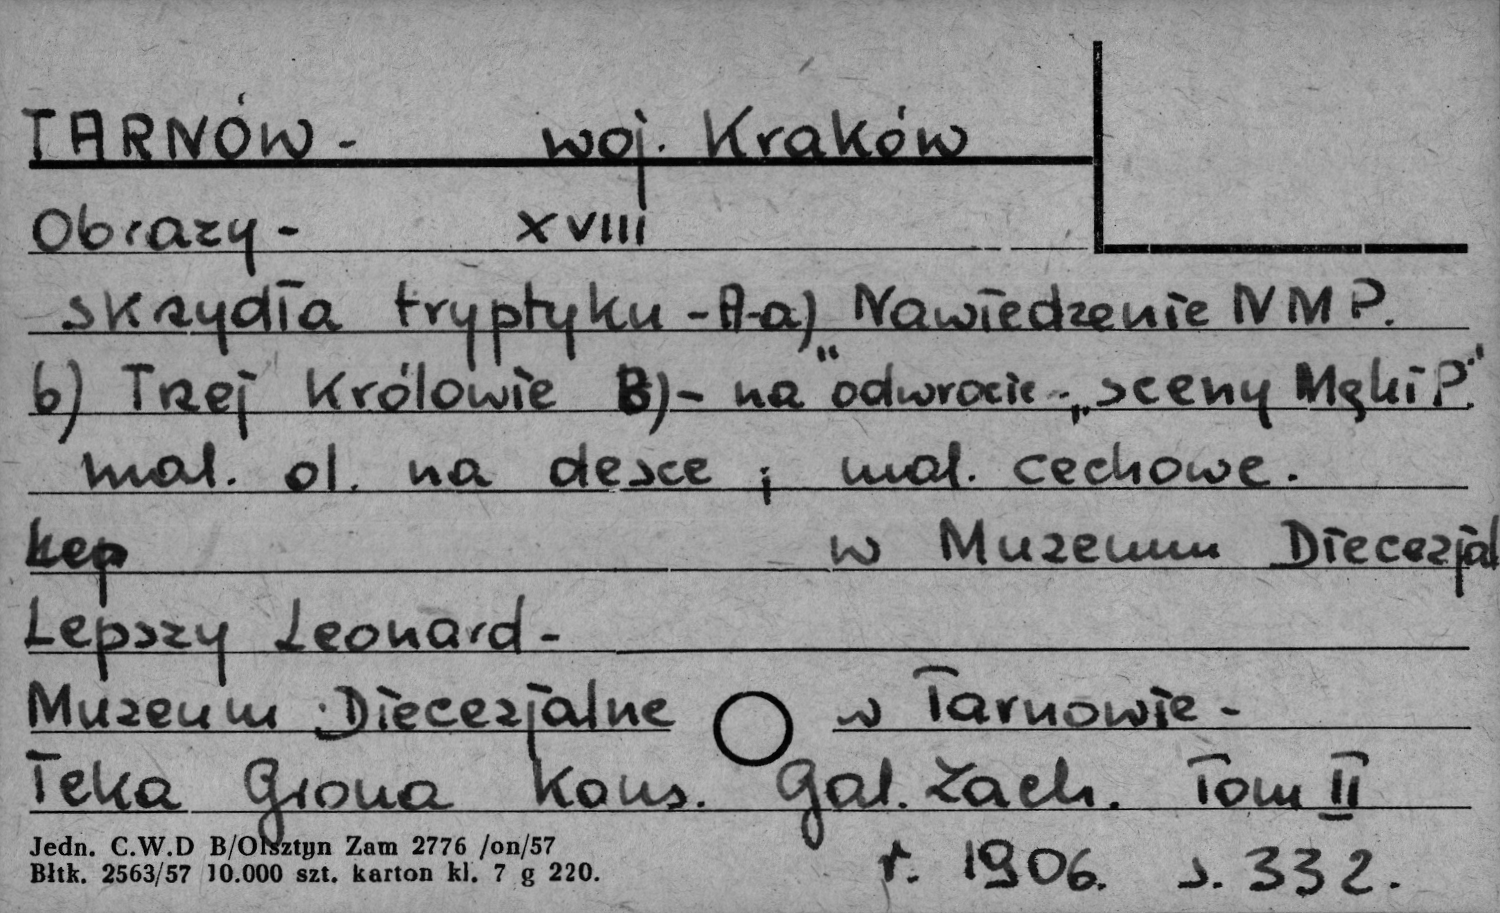 TARNÓW - woj. Kraków
Obrazy - XVIII
skrzydła tryptyku - A-a) Nawiedzenie NMP.
b) Trzej Królowie B) - na "odwrocie - „sceny Męki P."
mal. ol. na desce ; mal. cechowe.
Lep w Muzeum Diecezjal
Lepszy Leonard -
Muzeum Diecezjalne w Tarnowie -
Teka Grona Kons. Gal. Zach. Tom II
Jedn. C.W.D B/Olsztyn Zam 2776 /on/57
Błtk. 2563/57 10.000 szt. karton kl. 7 g 220.
r. 1906. s. 332.